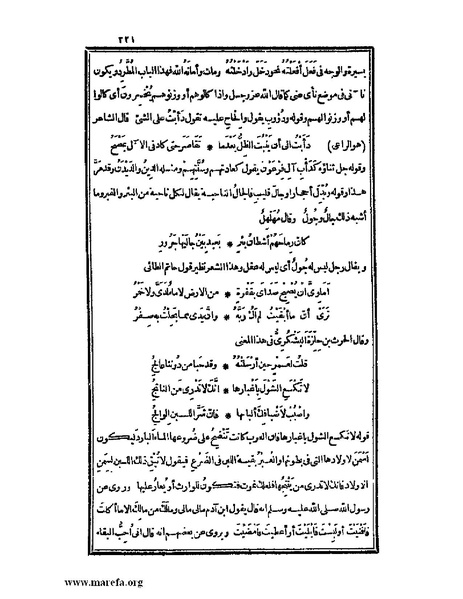 ٢٢١
بسيرة والوجه فى فعل أفعلته نحو دخل وأدخلته ومات وأماته الله فهذا الباب المطرد ويكون
نآنى فى موضع نأى عنى كما قال الله عز وجل واذا كالوهم أو وزنوهم يخسرون أى كالوا
لهم أو وزنوا لهم وقوله ودؤوب يقول والحاح عليه تقول دأبت على الشئ قال الشاعر
(هو الراعى) دأبت الى أن ينبت الظل بعدما * تقاصر حتى كاد فى الآل يمصح
وقوله جل ثناؤه كدأب آل فرعون يقول كعادتهم وسنتهم ومثله الدين والديدن وقد مر
هذا وقوله وبدل أحجارا وجال قليب فالجال الناحية يقال لكل ناحية من البئر والقبر وما
أشبه ذلك جال وجول وقال مهلهل
كأن رماحهم أشطان بئر * بعيد بين جاليها جرور
ويقال رجل ليس له جول أى ليس له عقل وهذا الشعر نظير قول حاتم الطائى
أماوى ان يصبح صداى بقفرة * من الارض لا ماء لدى ولا خمر
ترى أن ما أبقيت لم أك ربه * وأن يدى مما بخلت به صفر
وقال الحرث بن حلزة اليشكرى فى هذا المعنى
قلت لعمرو حين أرسلته * وقد حبا من دوننا عالج
لا تكسع الشول بأغبارها * انك لا تدرى من الناتج
واصبب لأضيافك ألبانها * فان شر اللبن الوالج
قوله لا تكسع الشول بأغبارها فان العرب كانت تنضح على ضروعها الماء البارد ليكون
أسمن لاولادها التى فى بطونها والغبر بقية اللبن فى الضرع فيقول لا تبق ذلك اللبن لسمن
الاولاد فانك لا تدرى من ينتجها فلعلك تموت فتكون للوارث أو يغار عليها وروى عن
رسول الله صلى الله عليه وسلم انه قال يقول ابن آدم مالى مالى ومالك من مالك الا ما أكلت
فأفنيت أو لبست فأبليت أو أعطيت فأمضيت ويروى عن بعضهم انه قال انى أحب البقاء
www.marefa.org